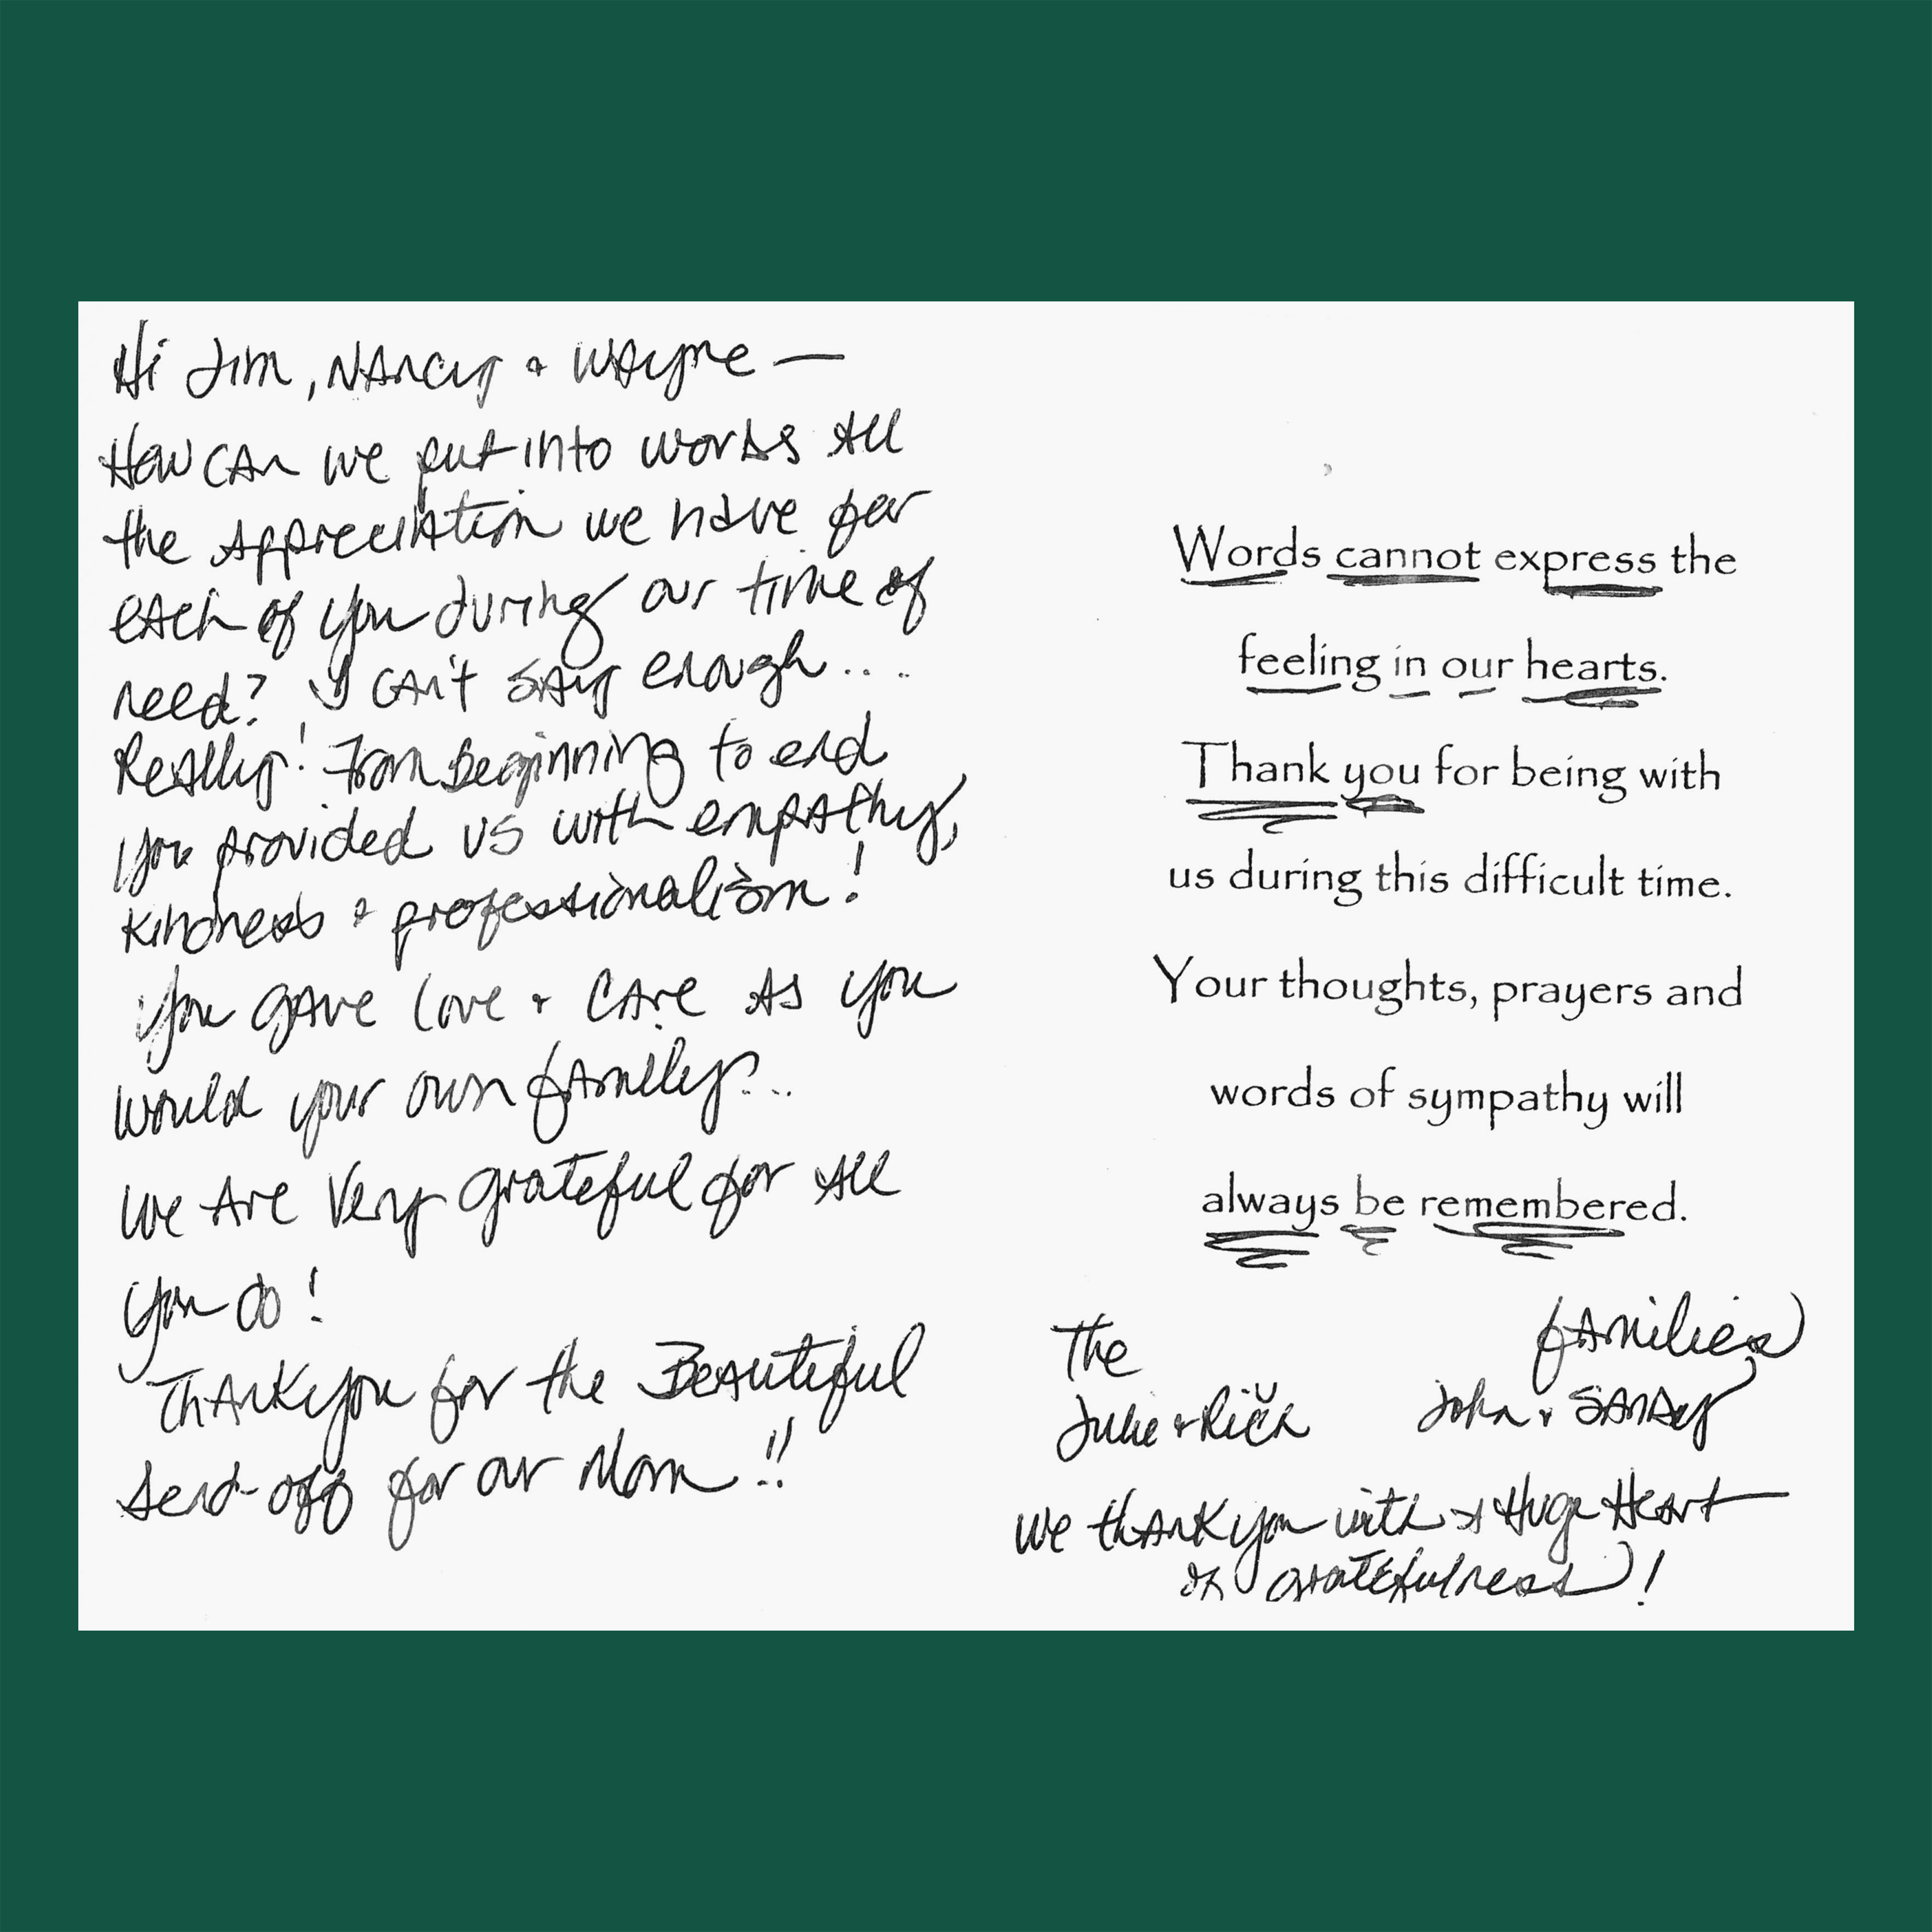 Hi Jim, Nancy + Wayne —
How can we put into words all
the appreciation we have for
each of you during our time of
need? I can't say enough....
Really! From beginning to end
you provided us with empathy,
kindness + professionalism!
You gave love + care as you
would your own family...
We are very grateful for all
you do!
Thank you for the Beautiful
send-off for our Mom!!
Words cannot express the
feeling in our hearts.
Thank you for being with
us during this difficult time.
Your thoughts, prayers and
words of sympathy will
always be remembered.
The families
Julie + Rick John + Sandy
We thank you with a Huge Heart
of gratefulness!